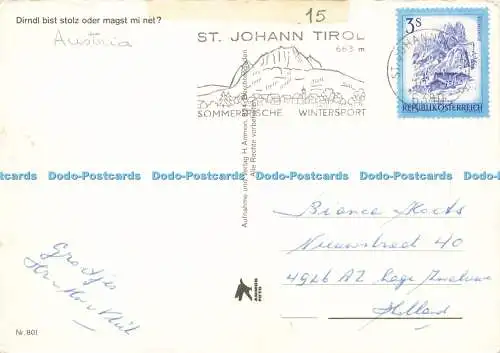 Dirndl bist stolz oder magst mi net?
Austria
15
ST. JOHANN TIROL
663 m
SOMMERFRISCHE WINTERSPORT
3 S
REPUBLIK ÖSTERREICH
ST. JOHANN
Aufnahme und Verlag H. Ammon,
Alle Rechte vorbehalten
Dodo-Postcards Dodo-Postcards Dodo-Postcards Dodo-Postcards Dodo-Postcards
Bianca
Nieuwstraat 40
4926 AZ Lage Zwaluwe
Holland
Groetjes
AMMON
FOTO
Nr. 801